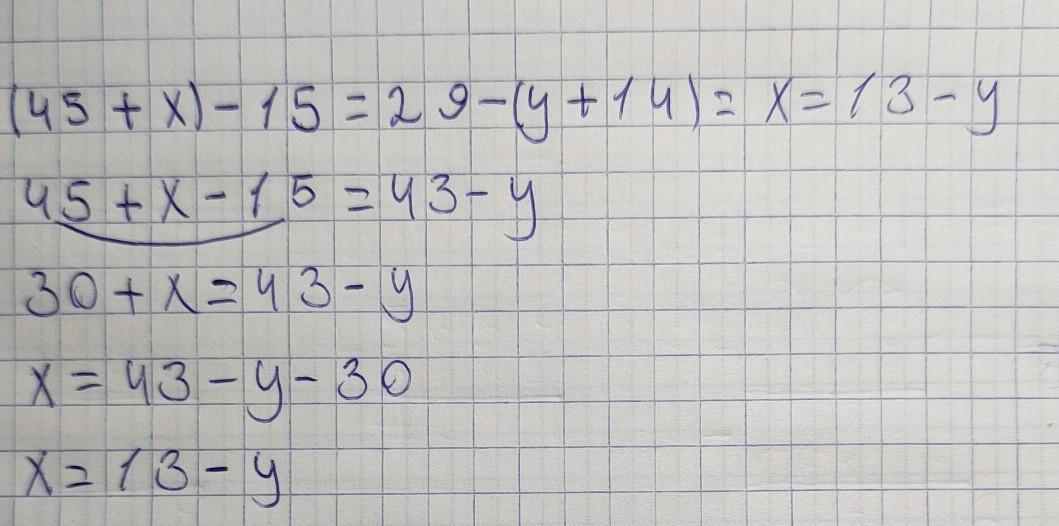 (45 + x) - 15 = 29 - (y + 14) = x = 13 - y
45 + x - 15 = 43 - y
30 + x = 43 - y
x = 43 - y - 30
x = 13 - y